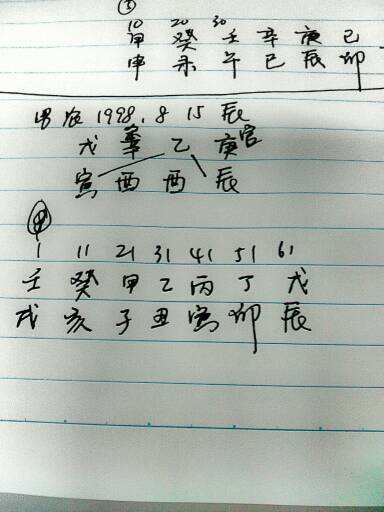 10 20 30
甲 癸 壬 辛 庚 己
申 未 午 巳 辰 卯
男 农 1998.8 15 辰
戊 辛 乙 庚官
寅 酉 酉 辰
1 11 21 31 41 51 61
壬 癸 甲 乙 丙 丁 戊
戌 亥 子 丑 寅 卯 辰